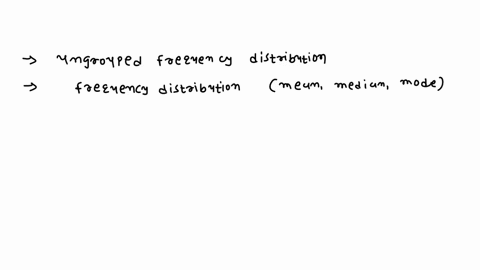 → ungrouped frequency distribution
→ frequency distribution (mean, median, mode)